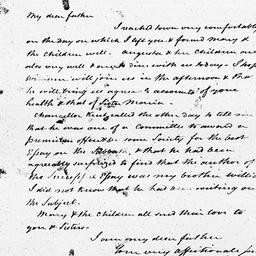 My dear father
I reached town very comfortably
on the day on which I left you & found Mary &
the children well. Augusta & her children are
also very well & are to dine with us today. I hope
William will join us in the afternoon & that
he will bring us agreeable accounts of your
health & that of Sister Maria.
Chancellor Kent called the other day to tell me
that he was one of a Committee to award a
premium offered by some Society for the best
Essay on the Sabbath, & that he had been
agreeably surprized to find that the author of
the successful Essay was my brother William
I did not know that he had been writing on
the Subject.
Mary & the Children all send their love to
you & Sisters.
I am my dear father
Your very affectionate son